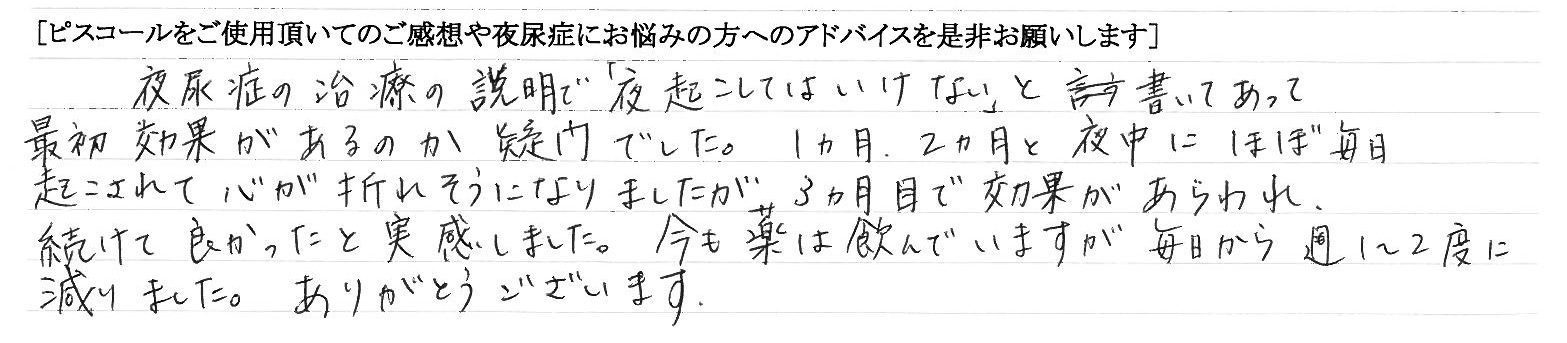 [ピスコールをご使用頂いてのご感想や夜尿症にお悩みの方へのアドバイスを是非お願いします]
夜尿症の治療の説明で「夜起こしてはいけない」と書いてあって
最初効果があるのか疑問でした。1カ月、2カ月と夜中にほぼ毎日
起こされて心が折れそうになりましたが、3カ月目で効果があらわれ、
続けて良かったと実感しました。今も薬は飲んでいますが毎日から週1~2度に
減りました。ありがとうございます。